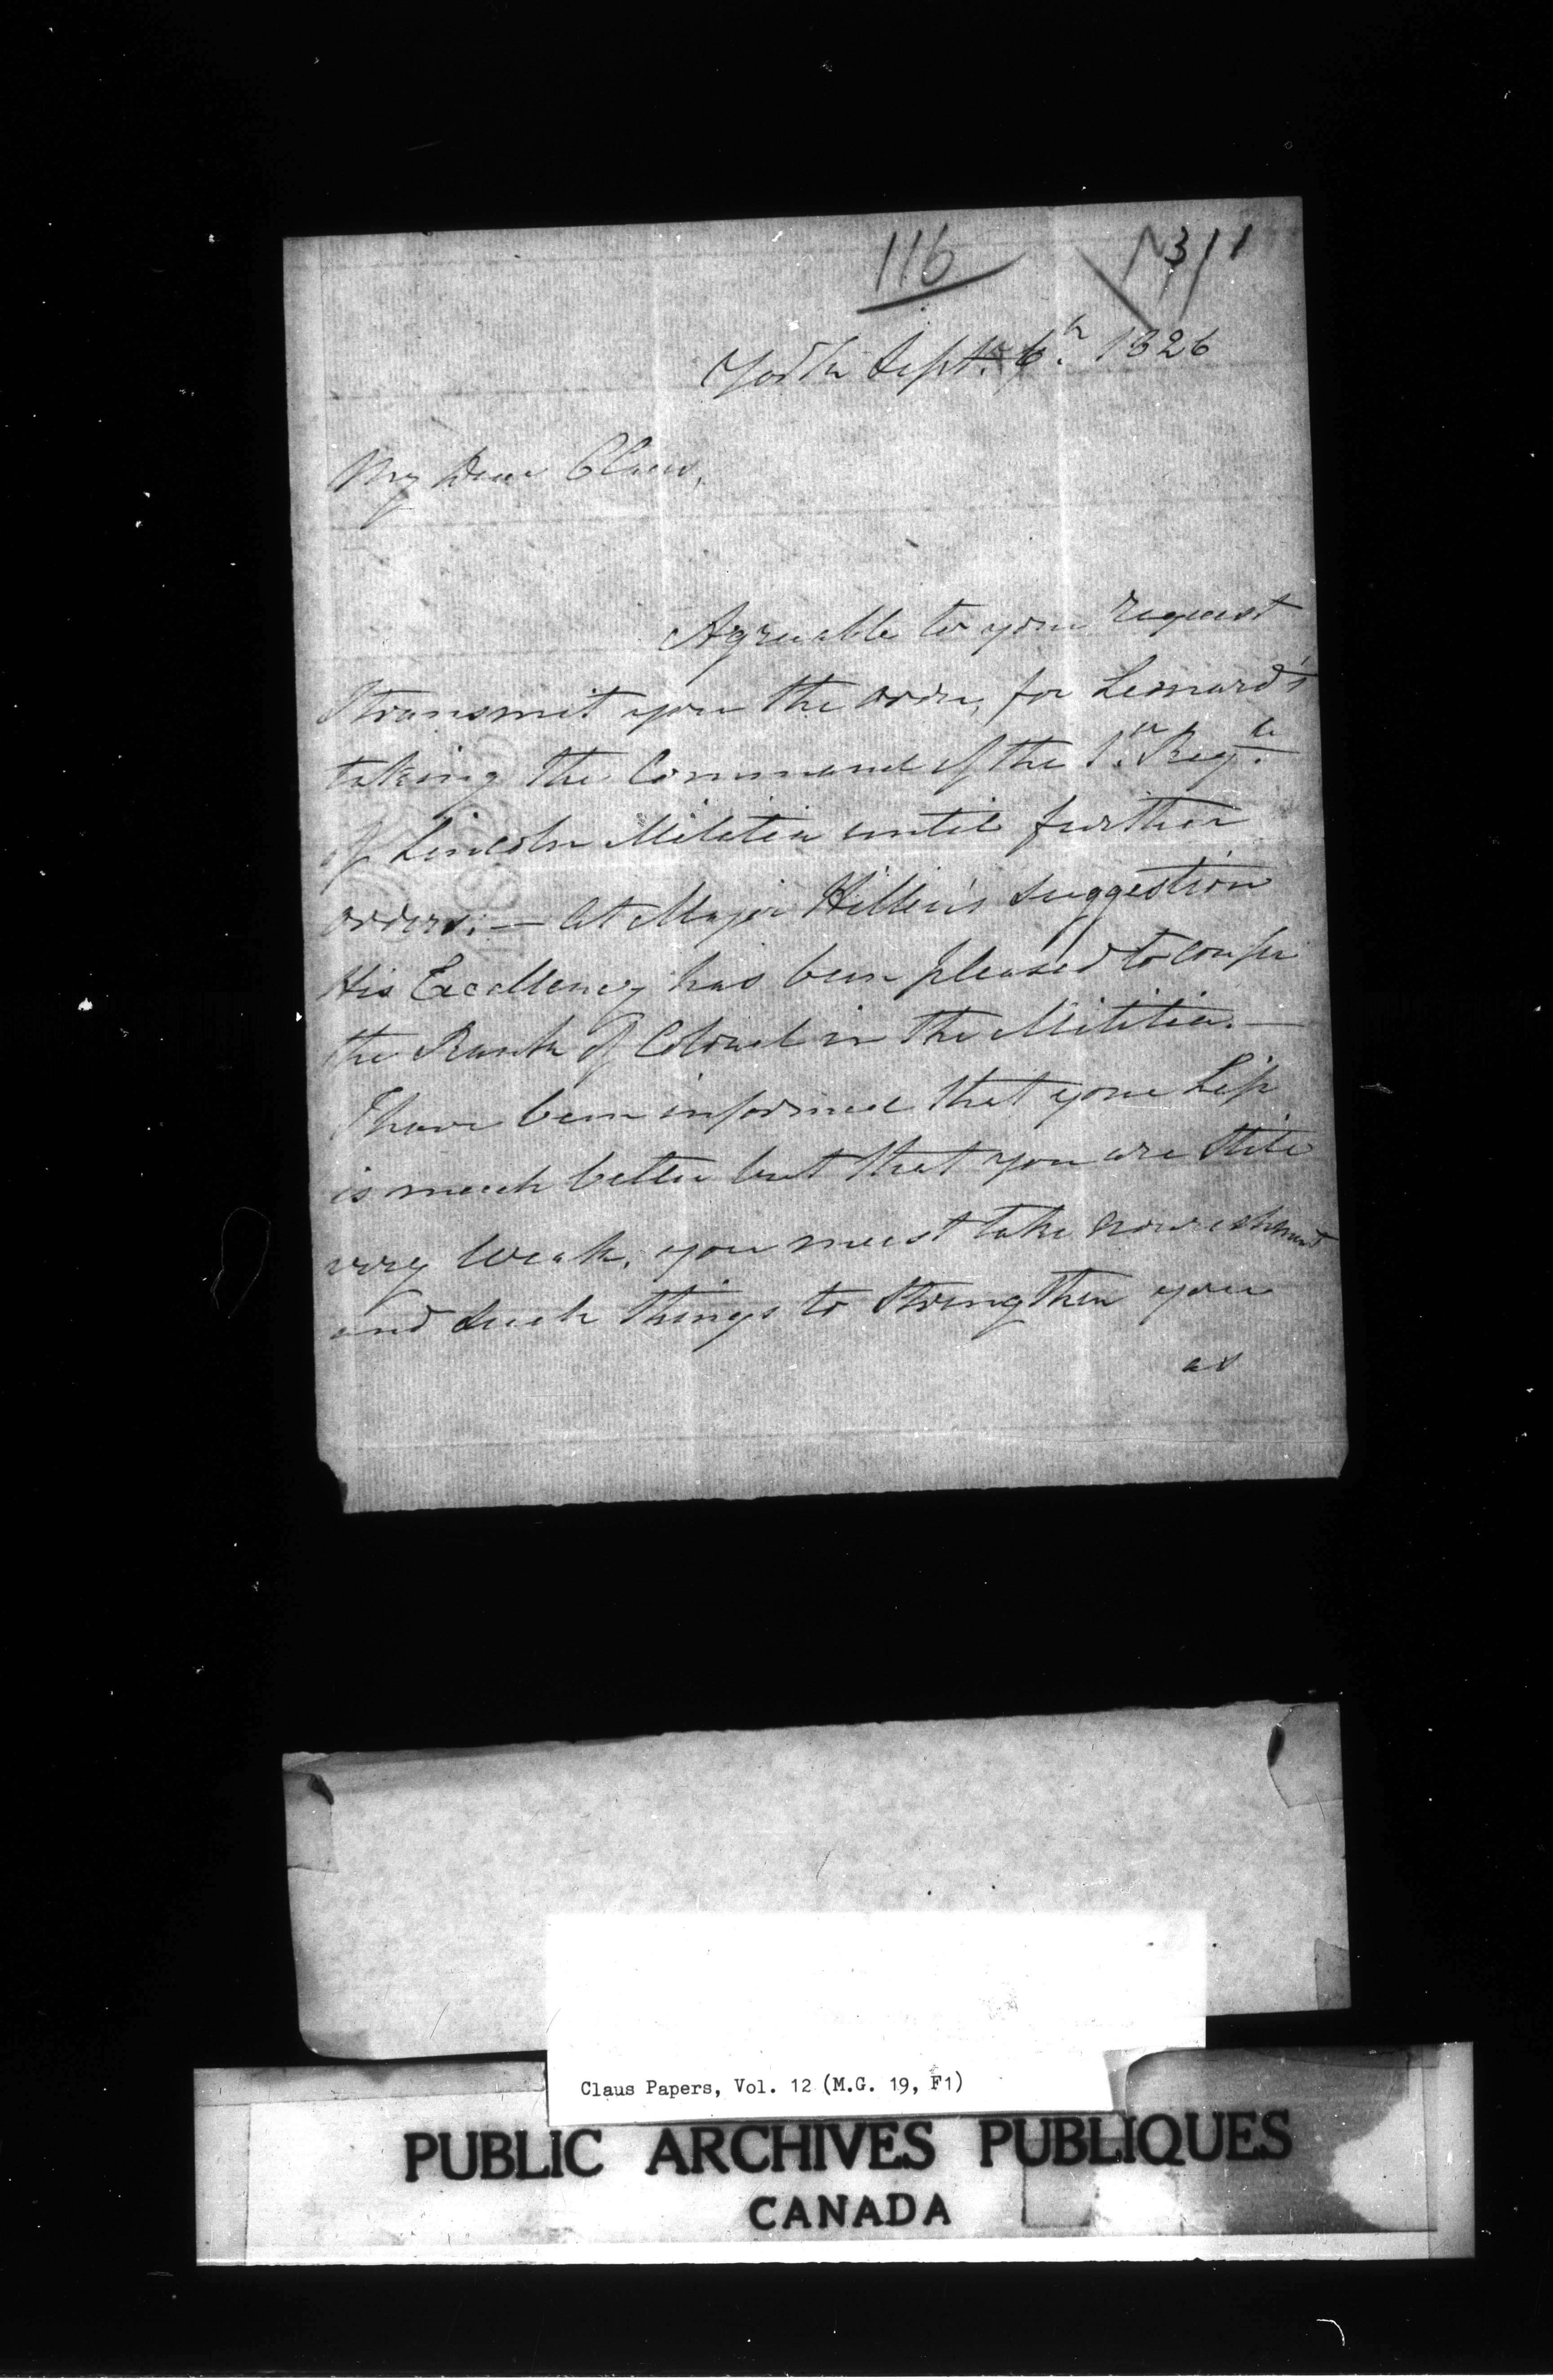 116
York Septr. 6th. 1826
My Dear Claus,
Agreeable to your request
I transmit you the order, for Leonard's
taking the Command of the 1st. Regt.
of Lincoln Militia until further
orders. — At Major Hillier's suggestion
His Excellency has been pleased to confer
the Rank of Colonel in the Militia. —
I have been informed that your Lip
is much better but that you are still
very weak, you must take nourishment
and such things to strengthen you
as
Claus Papers, Vol. 12 (M.G. 19, F1)
PUBLIC ARCHIVES PUBLIQUES
CANADA